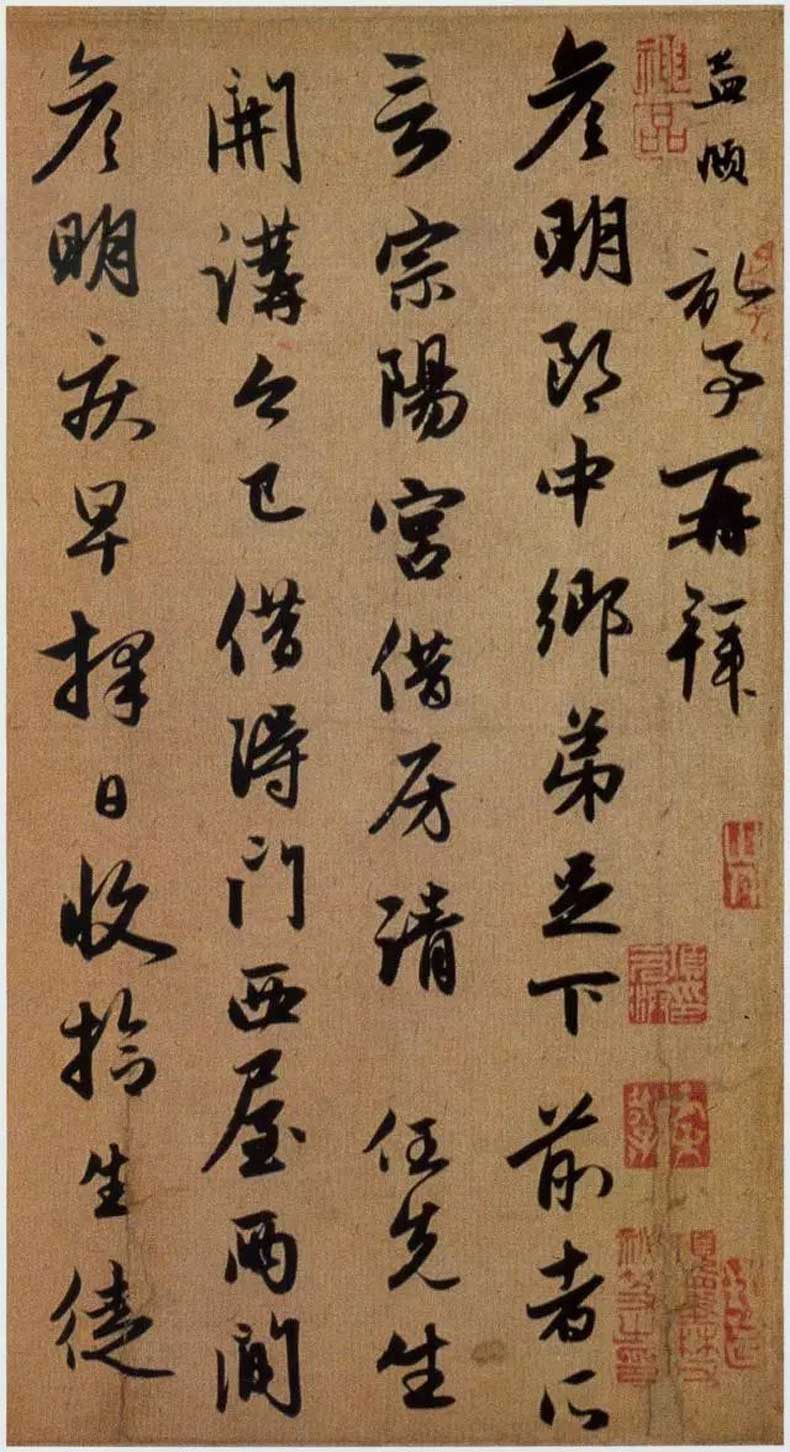 孟頫 記事再拜
彥明郎中鄉弟足下 前者所
言宗陽宮借房請 任先生
開講今已借得門西屋兩間
彥明疾早擇日收拾生徒
神品